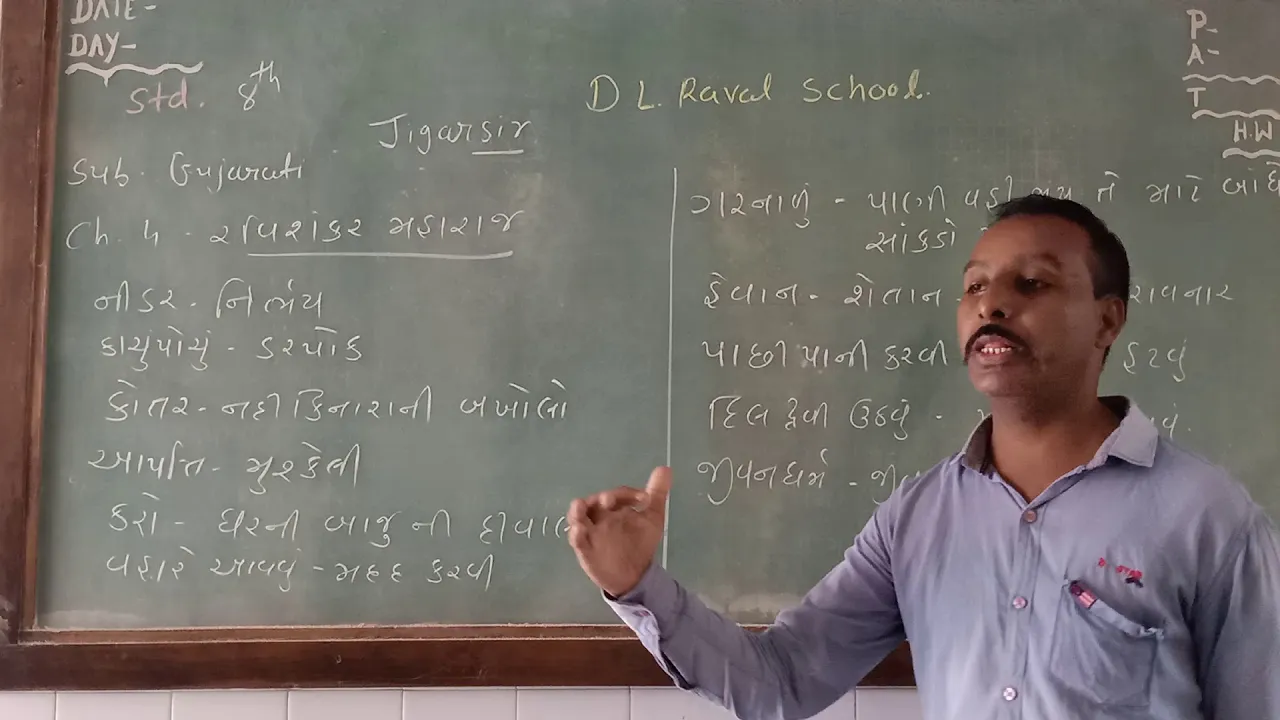 DATE-
DAY-
Std. 8th
D L. Raval School.
Jigarsir
Sub. Gujarati
Ch. 4 - રવિશંકર મહારાજ
નીડર - નિર્ભય
કાચુંપોચું - ડરપોક
કોતર - નદીકિનારાની બખોલો
આપત્તિ - મુશ્કેલી
કરો - ઘરની બાજુ ની દીવાલ
વહારે આવવું - મદદ કરવી
P-
A-
T-
H.W
ગરનાળું - પાણી વહી જાય તે માટે બાંધે
સાંકડો
હેવાન - શેતાન
પાછીપાની કરવી હટવું
દિલ દ્રવી ઉઠવું -
જીવનધર્મ -